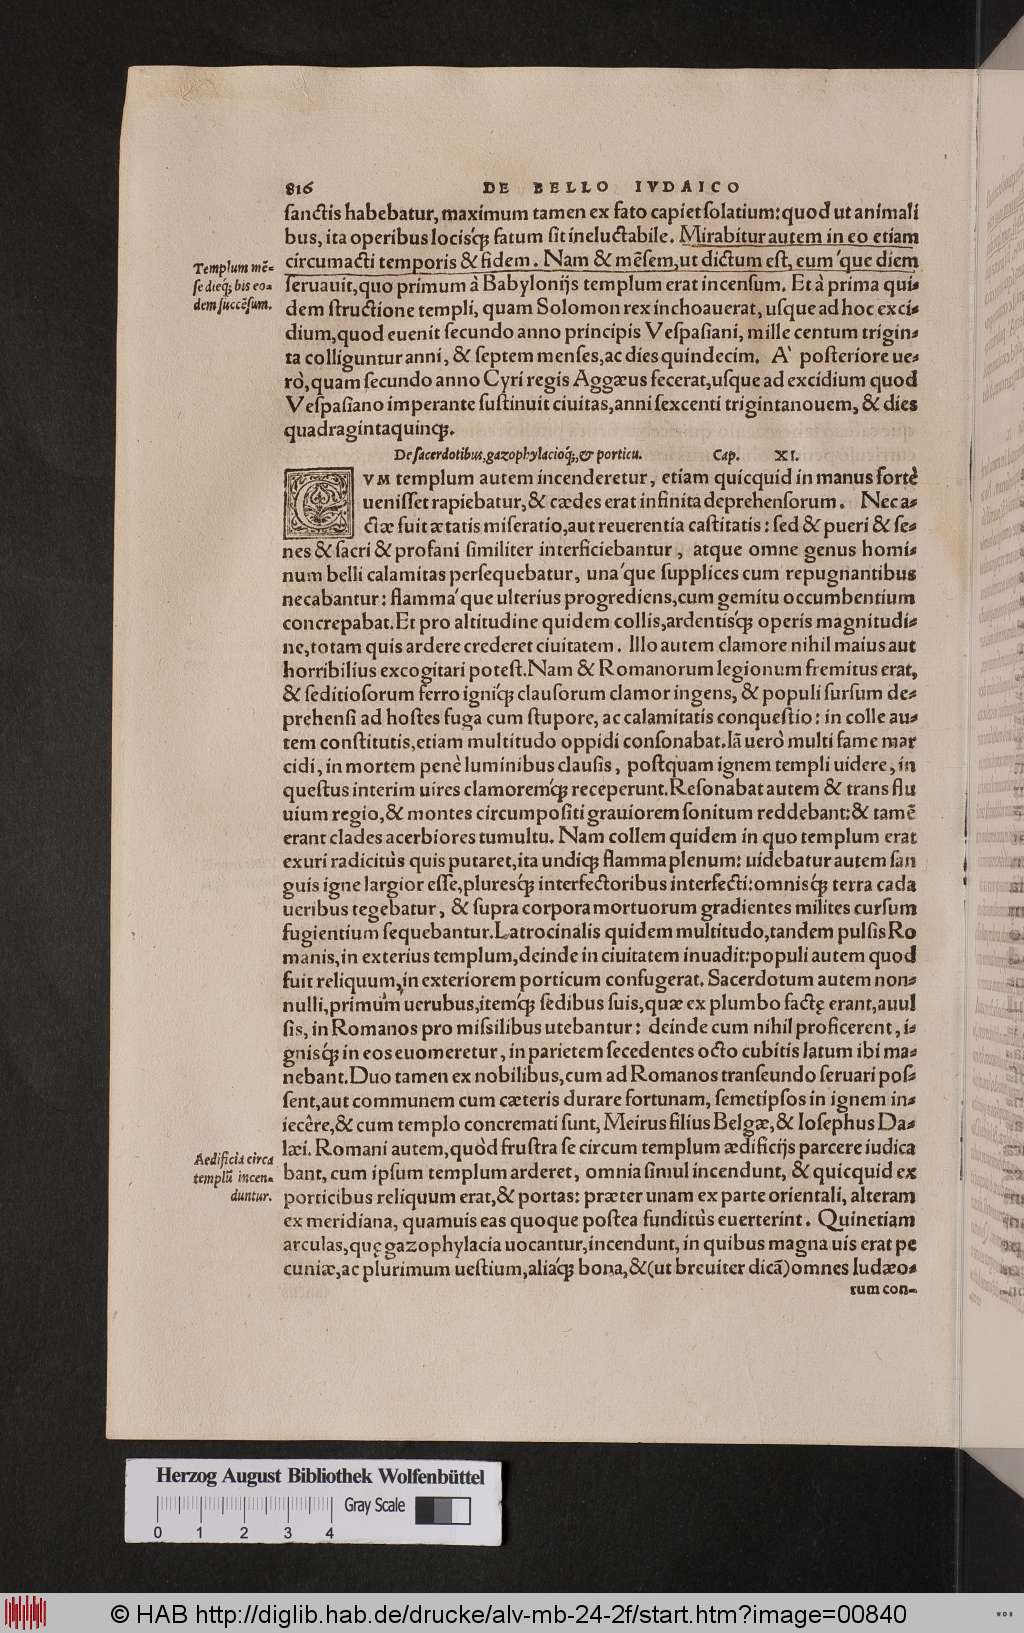 816 DE BELLO IVDAICO
sanctis habebatur, maximum tamen ex fato capiet solatium: quod ut animali
bus, ita operibus locisq́ꝫ fatum sit ineluctabile. Mirabitur autem in eo etiam
circumacti temporis & fidem. Nam & mẽsem, ut dictum est, eum´que diem
seruauit, quo primum à Babylonijs templum erat incensum. Et à prima qui-
dem structione templi, quam Solomon rex inchoauerat, usque ad hoc exci-
dium, quod euenit secundo anno principis Vespasiani, mille centum trigin-
ta colliguntur anni, & septem menses, ac dies quindecim. A` posteriore ue-
rò, quam secundo anno Cyri regis Aggæus fecerat, usque ad excidium quod
Vespasiano imperante sustinuit ciuitas, anni sexcenti trigintanouem, & dies
quadragintaquinqꝫ.
Templum mẽ-
se dieq́ꝫ bis eo-
dem succẽsum.
De sacerdotibus, gazophylacioq́ꝫ, & porticu. Cap. XI.
CVM templum autem incenderetur, etiam quicquid in manus fortè
uenisset rapiebatur, & cædes erat infinita deprehensorum. Nec a-
ctiæ fuit ætatis miseratio, aut reuerentia castitatis: sed & pueri & se-
nes & sacri & profani similiter interficiebantur, atque omne genus homi-
num belli calamitas persequebatur, una´que supplices cum repugnantibus
necabantur: flamma´que ulterius progrediens, cum gemitu occumbentium
concrepabat. Et pro altitudine quidem collis, ardentisq́ꝫ operis magnitudi-
ne, totam quis ardere crederet ciuitatem. Illo autem clamore nihil maius aut
horribilius excogitari potest. Nam & Romanorum legionum fremitus erat,
& seditiosorum ferro igniq́ꝫ clausorum clamor ingens, & populi sursum de-
prehensi ad hostes fuga cum stupore, ac calamitatis conquestio: in colle au-
tem constitutis, etiam multitudo oppidi consonabat. Iã uerò multi fame mar
cidi, in mortem penè luminibus clausis, postquam ignem templi uidere, in
questus interim uires clamoremq́ꝫ receperunt. Resonabat autem & trans flu
uium regio, & montes circumpositi grauiorem sonitum reddebant: & tamẽ
erant clades acerbiores tumultu. Nam collem quidem in quo templum erat
exuri radicitùs quis putaret, ita undiqꝫ flamma plenum: uidebatur autem san
guis igne largior esse, pluresq́ꝫ interfectoribus interfecti: omnisq́ꝫ terra cada
ueribus tegebatur, & supra corpora mortuorum gradientes milites cursum
fugientium sequebantur. Latrocinalis quidem multitudo, tandem pulsis Ro
manis, in exterius templum, deinde in ciuitatem inuadit: populi autem quod
fuit reliquum, in exteriorem porticum confugerat. Sacerdotum autem non-
nulli, primùm uerubus, itemq́ꝫ sedibus suis, quæ ex plumbo factę erant, auul
sis, in Romanos pro missilibus utebantur: deinde cum nihil proficerent, i-
gnisq́ꝫ in eos euomeretur, in parietem secedentes octo cubitis latum ibi ma-
nebant. Duo tamen ex nobilibus, cum ad Romanos transeundo seruari pos-
sent, aut communem cum cæteris durare fortunam, semetipsos in ignem in-
iecêre, & cum templo concremati sunt, Meirus filius Belgæ, & Iosephus Da-
læi. Romani autem, quòd frustra se circum templum ædificijs parcere iudica
bant, cum ipsum templum arderet, omnia simul incendunt, & quicquid ex
porticibus reliquum erat, & portas: præter unam ex parte orientali, alteram
ex meridiana, quamuis eas quoque postea funditùs euerterint. Quinetiam
arculas, quę gazophylacia uocantur, incendunt, in quibus magna uis erat pe
cuniæ, ac plurimum uestium, aliaq́ꝫ bona, & (ut breuiter dicã) omnes Iudæo-
rum con-
Aedificia circa
templũ incen-
duntur.
Herzog August Bibliothek Wolfenbüttel
Gray Scale
0 1 2 3 4
© HAB http://diglib.hab.de/drucke/alv-mb-24-2f/start.htm?image=00840